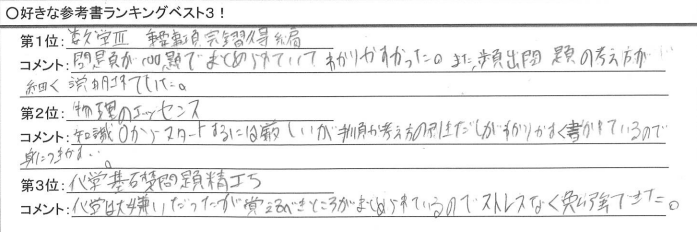 ○好きな参考書ランキングベスト3！
第1位：数学Ⅲ 重要事項完全習得編
コメント：問題が100題でまとめられていてわかりやすかった。また、頻出問題の考え方が
細く説明されてました。
第2位：物理のエッセンス
コメント：知識0からスタートするには厳しいが判用や考え方の引きだしがわかりやすく書かれているので
身につきます。
第3位：化学基礎問題精こう
コメント：化学は大嫌いだったが覚えるべきところがまとめられているのでストレスなく勉強できた。